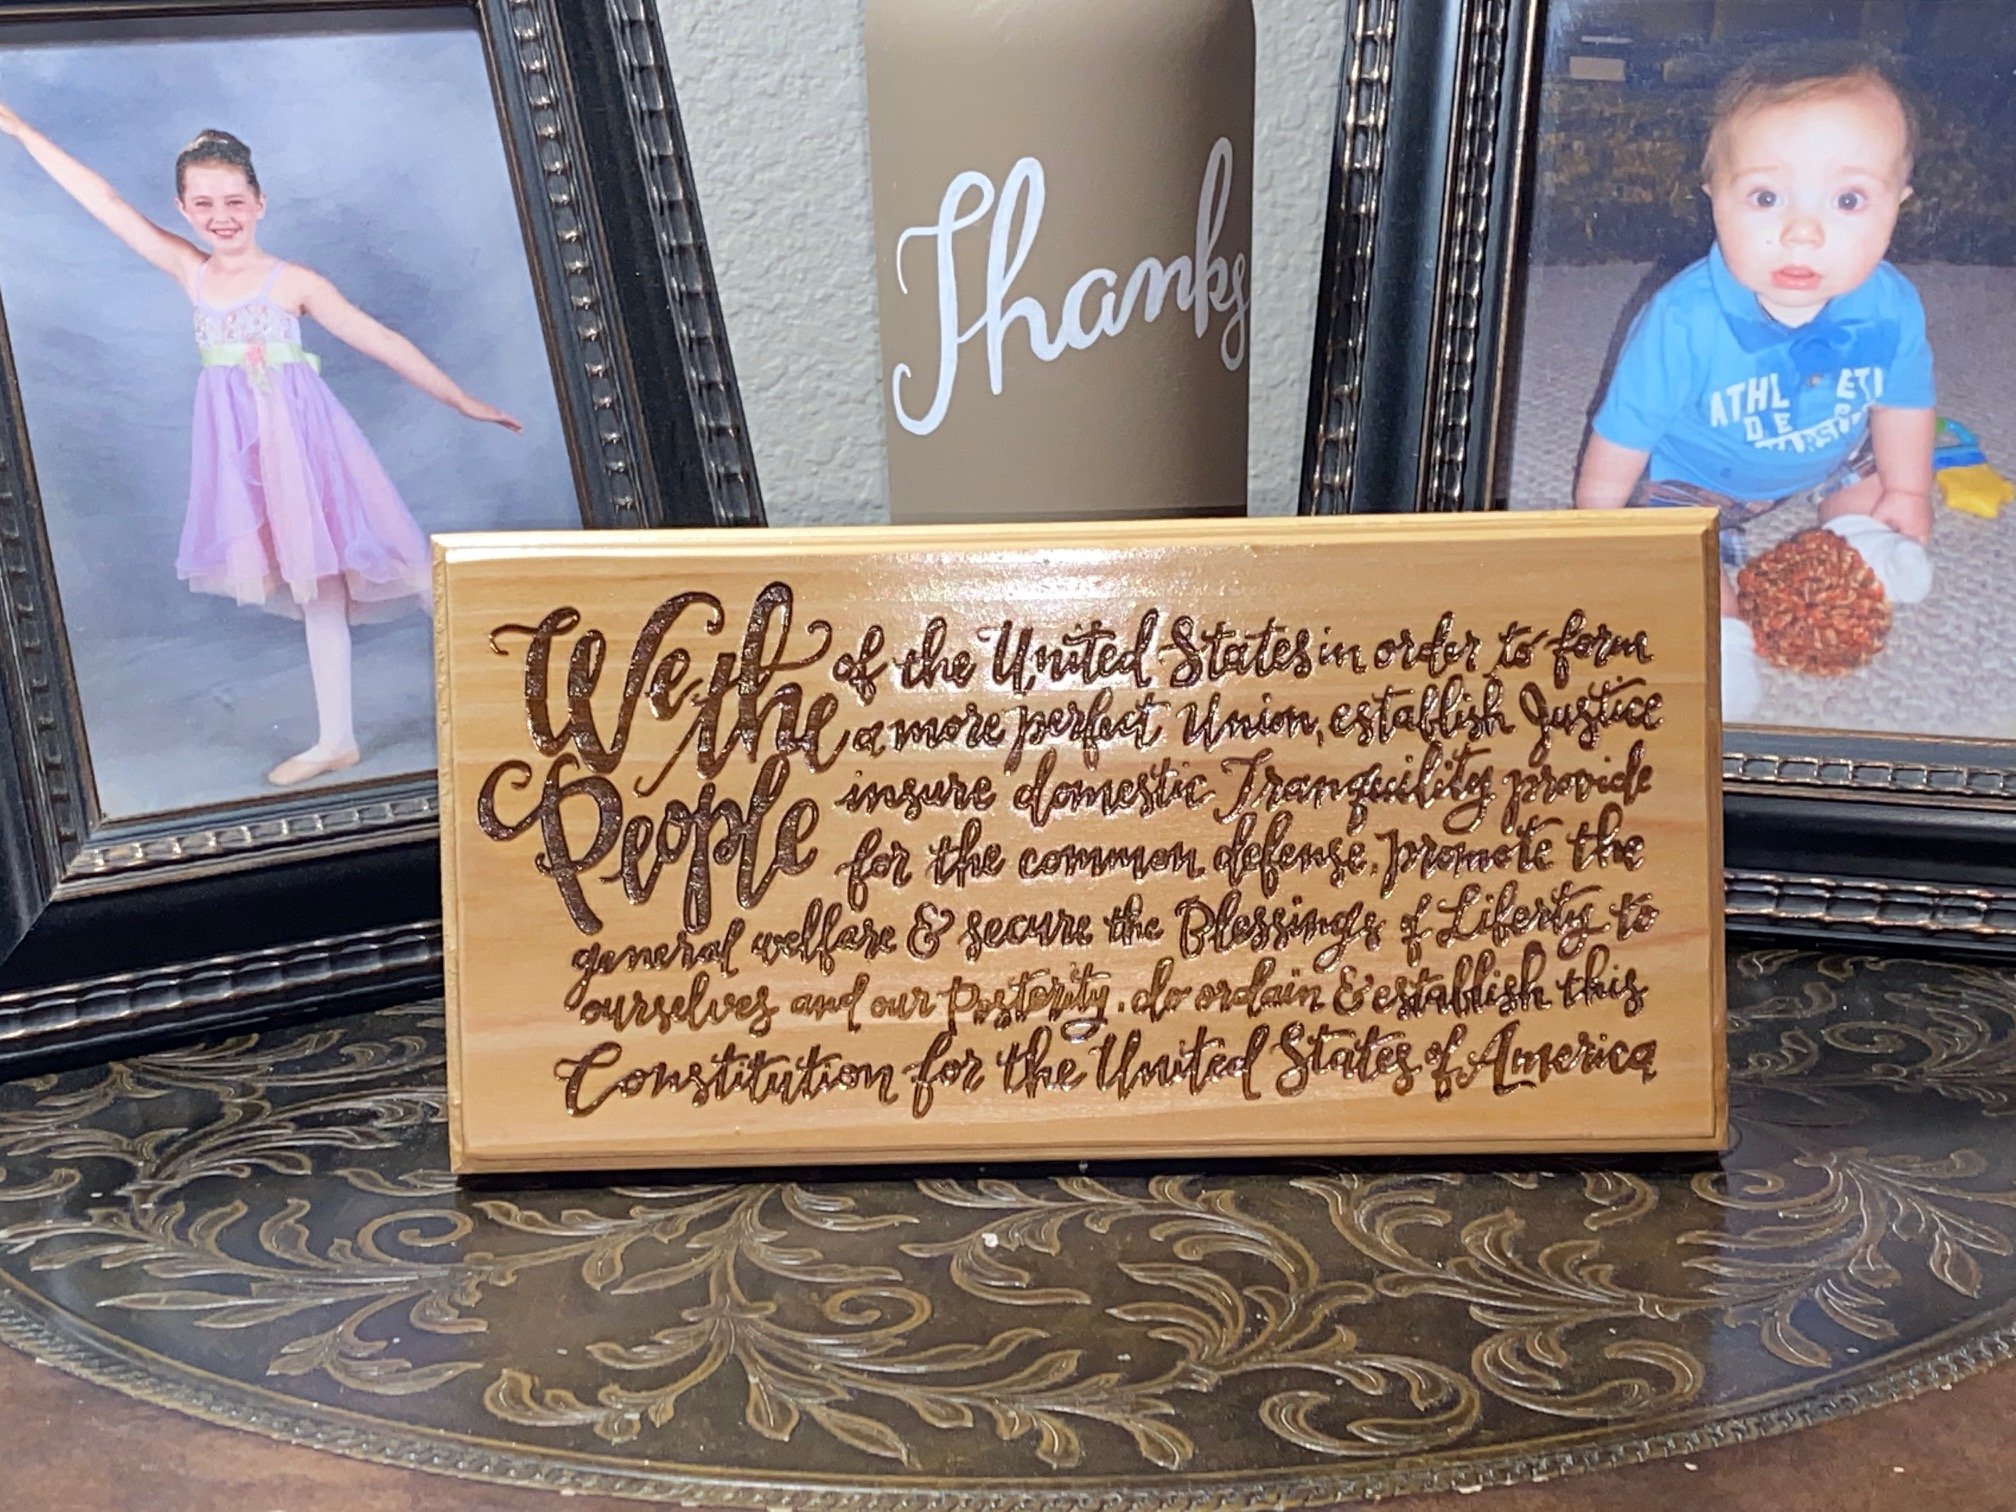 Thanks
ATHL ETI
DE
We the of the United States in order to form
a more perfect Union, establish Justice
People insure domestic Tranquility provide
for the common defense, promote the
general welfare & secure the Blessings of Liberty to
ourselves and our Posterity, do ordain & establish this
Constitution for the United States of America